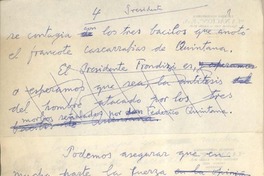 4 President 8
se contagia los tres bacilos que anotó
el francote cascarrabias de Quintana.
El Presidente Frondizi es,
o esperamos que sea, la antítesis
del hombre atacado por los tres
morbos señalados por Federico Quintana.
Podemos asegurar que en
mucha parte la fuerza